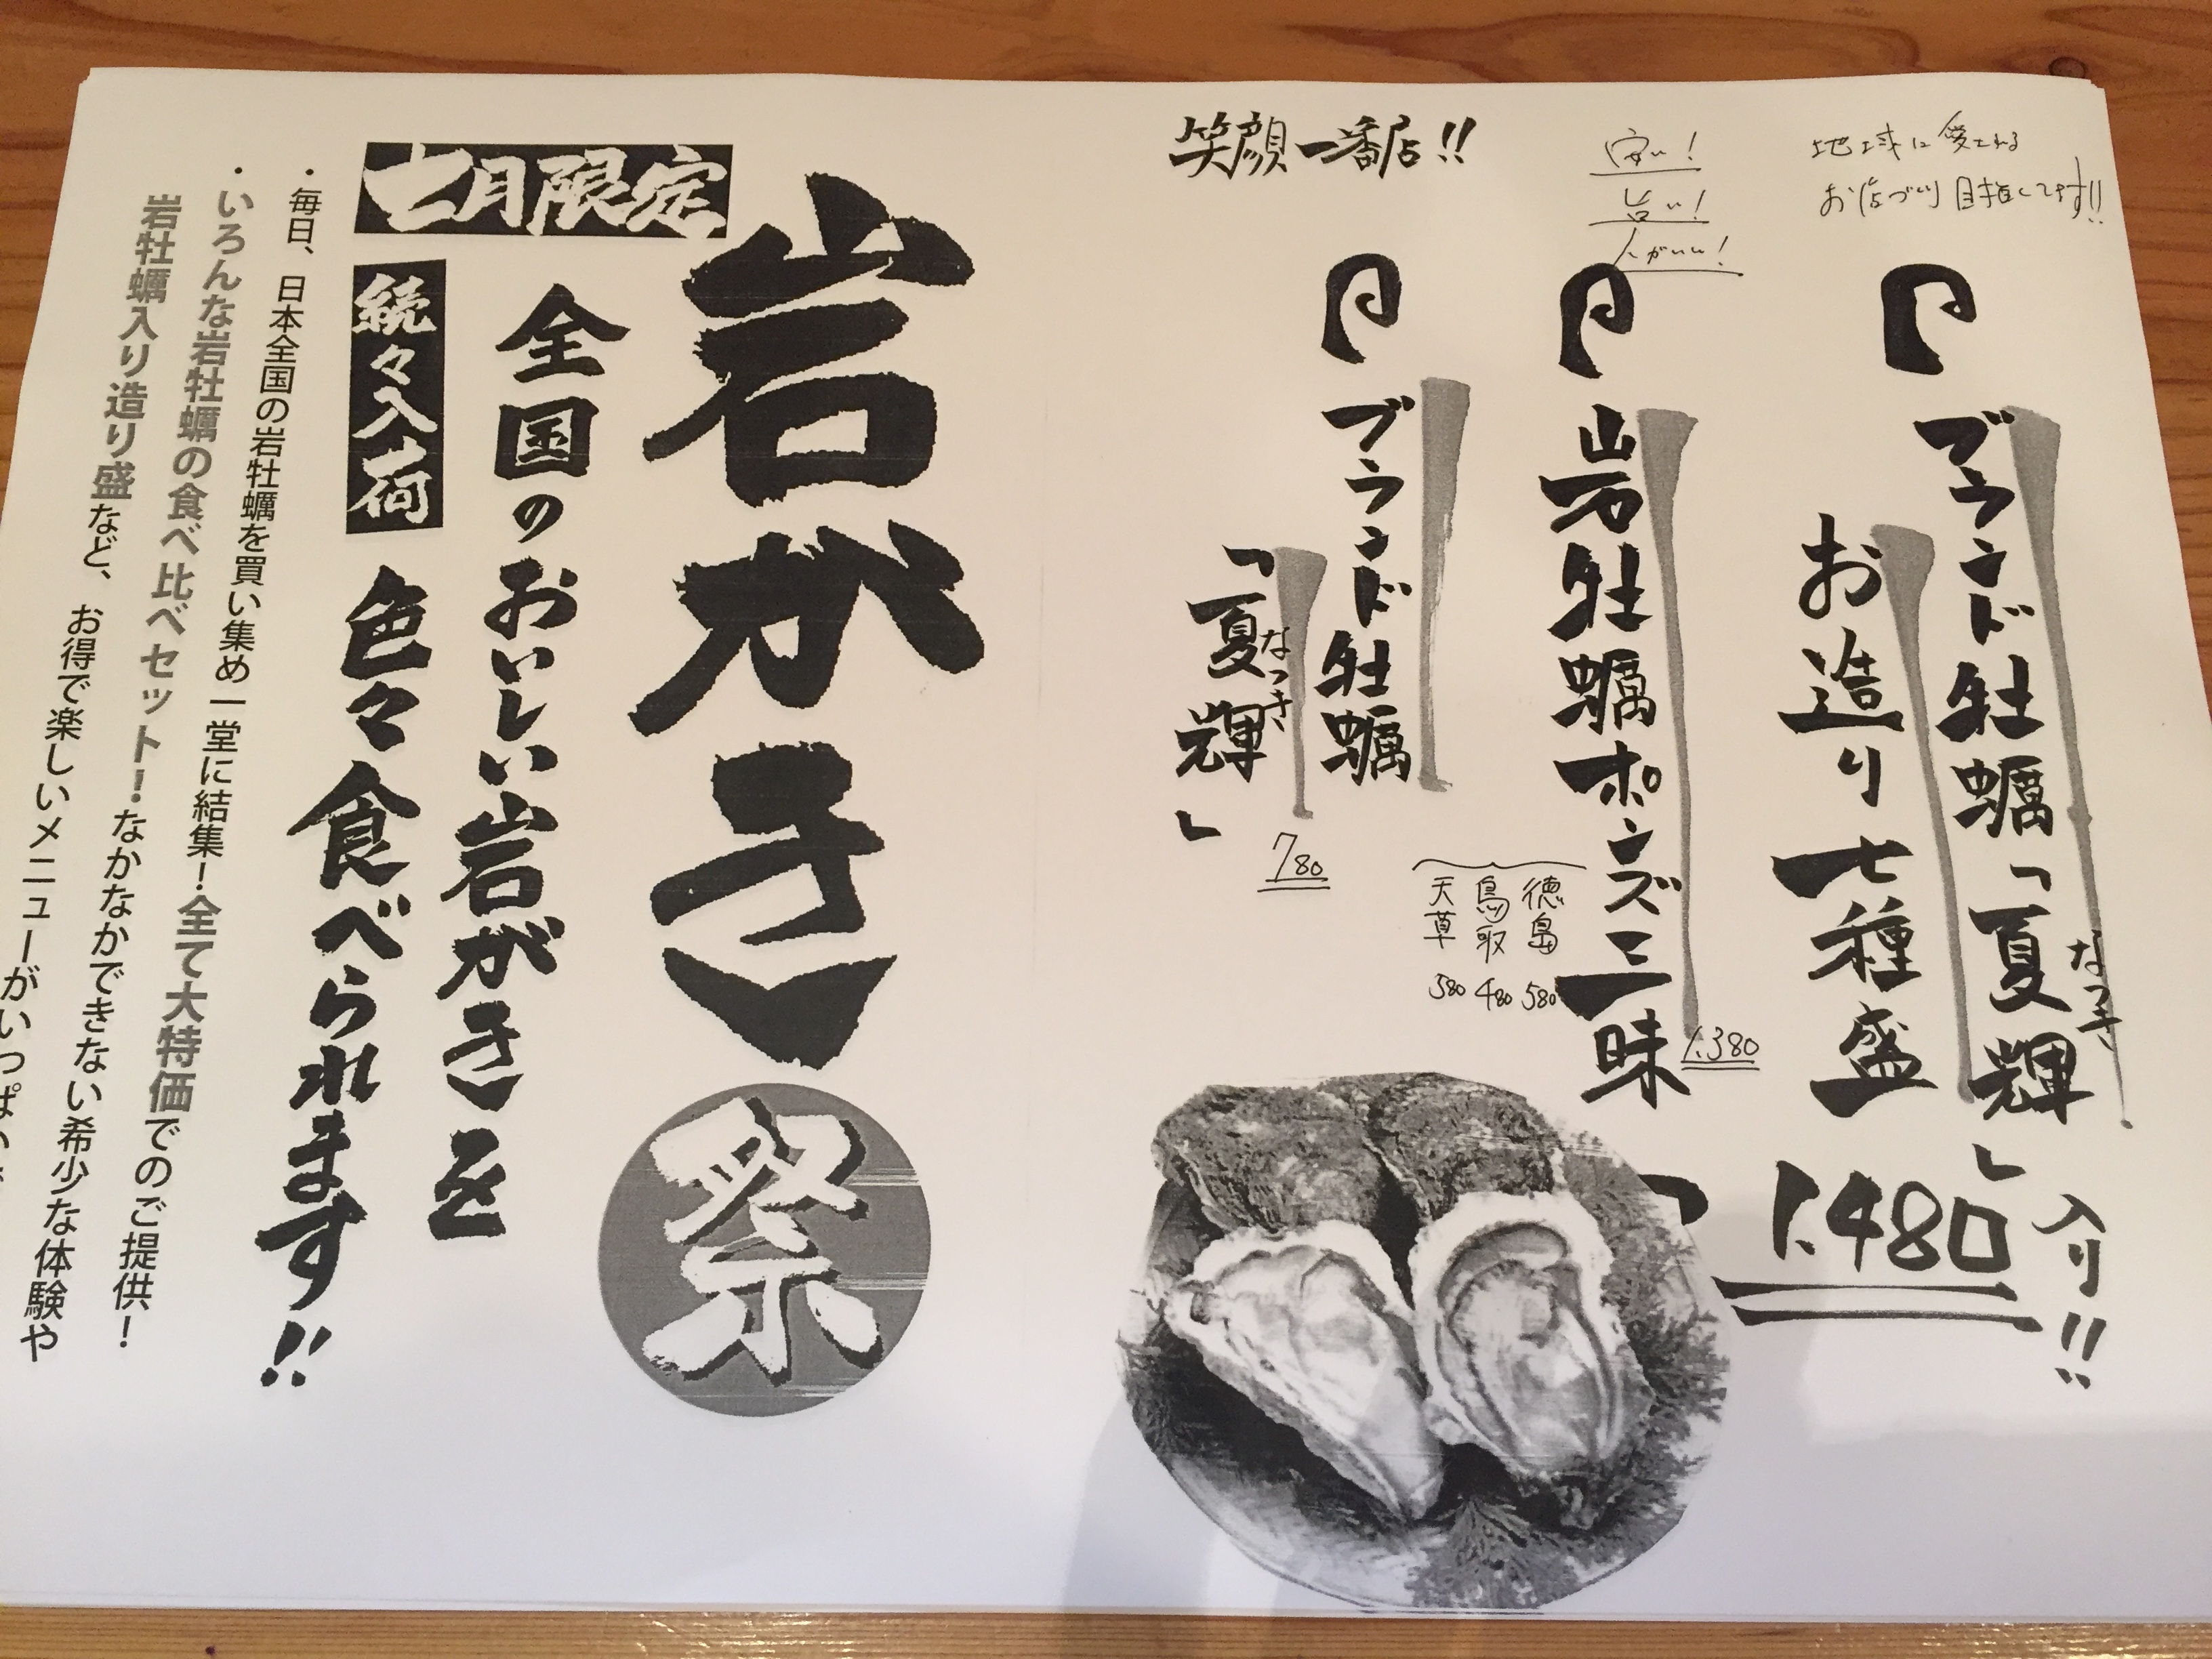 地域に愛される
お店づくり目指してます!!
安い!
旨い!
人がいい!
笑顔一番店!!
ブランド牡蠣「夏輝」入り!!
なつき
お造り七種盛
1.480
岩牡蠣ポンズ三昧
1.380
徳島 580
鳥取 480
天草 580
ブランド牡蠣
「夏輝」
なつき
780
岩がき祭
七月限定
全国のおいしい岩がきを
続々入荷
色々食べられます!!
・毎日、日本全国の岩牡蠣を買い集め一堂に結集!全て大特価でのご提供!
・いろんな岩牡蠣の食べ比べセット!なかなかできない希少な体験や
岩牡蠣入り造り盛など、お得で楽しいメニューがいっぱい